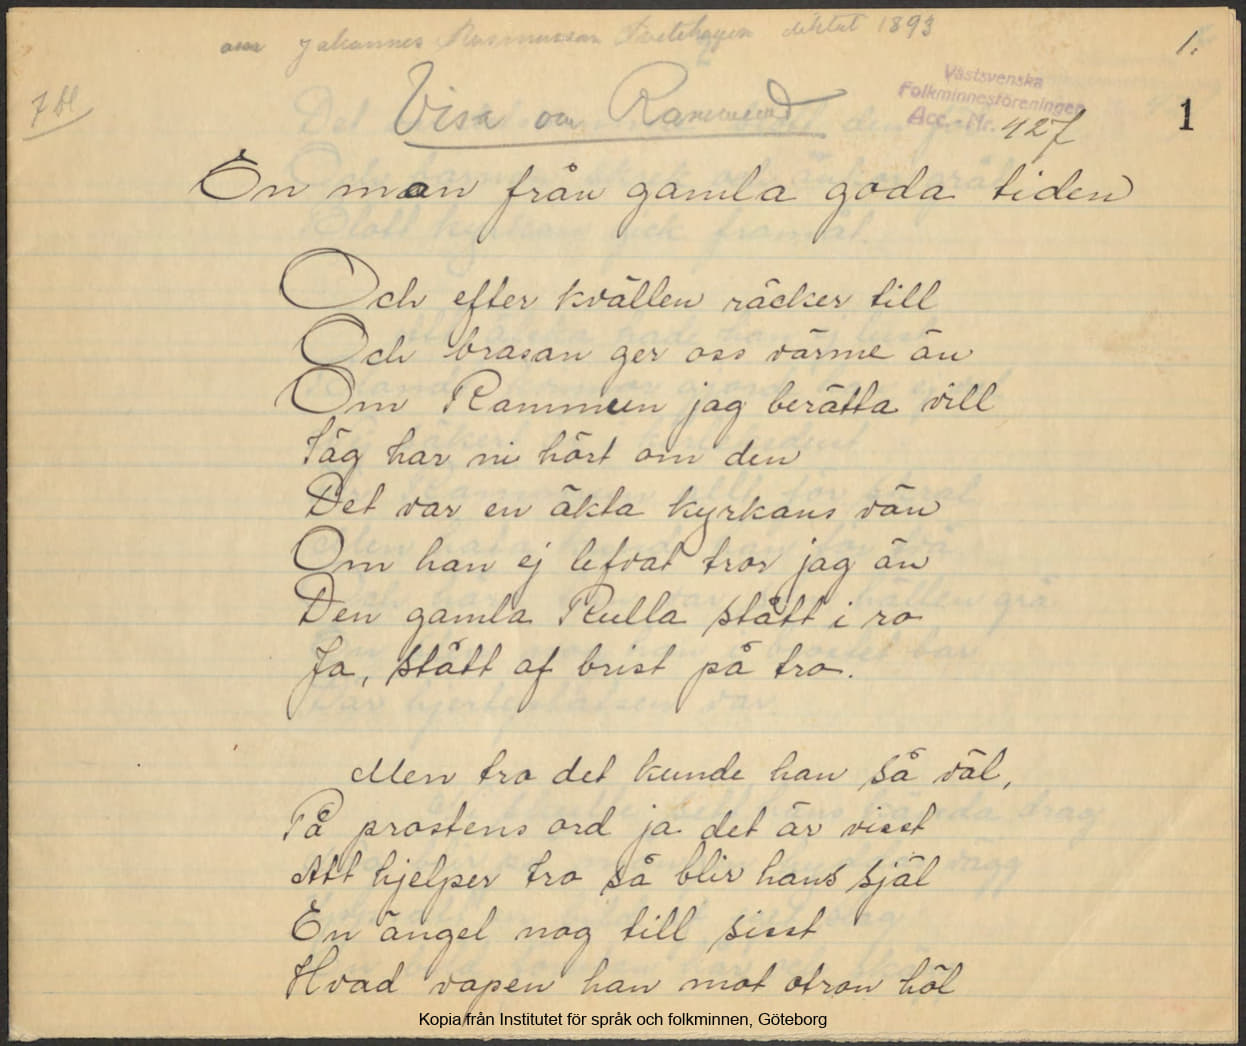 om Johannes Rasmusson Tvetshagen diktat 1893
1.
7 bl
Visa om Rammund
Västsvenska
Folkminnesföreningen
Acc. Nr. 427
1
En man från gamla goda tiden
Och efter kvällen räcker till
Och brasan ger oss värme än
Om Rammuen jag berätta vill
Säg har ni hört om den
Det var en äkta kyrkans vän
Om han ej lefvat tror jag än
Den gamla Kulla stått i ro
Ja, stått af brist på tro.
Men tro det kunde han så väl,
På prostens ord ja det är visst
Att hjelper tro så blir hans själ
En ängel nog till sisst
Hvad vapen han mot otron höl
Kopia från Institutet för språk och folkminnen, Göteborg